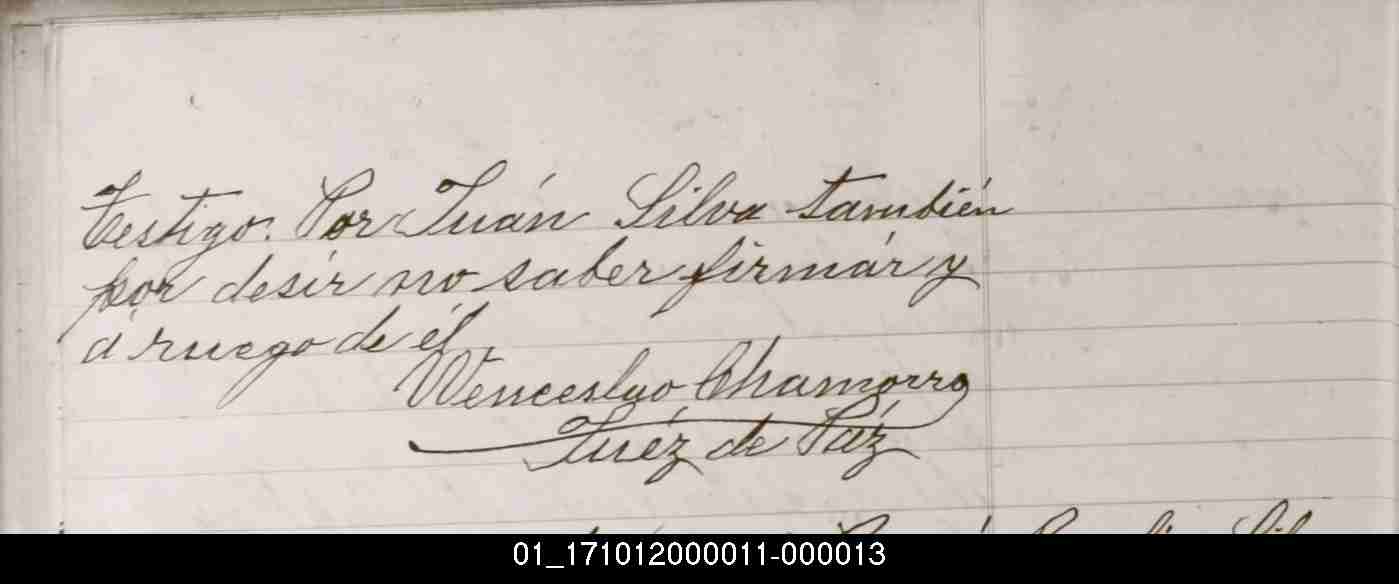 Testigo. Por Juán Silva también
por desír no saber firmár y
á ruego de él
Wenceslao Chamorro
Juéz de Páz
01_171012000011-000013